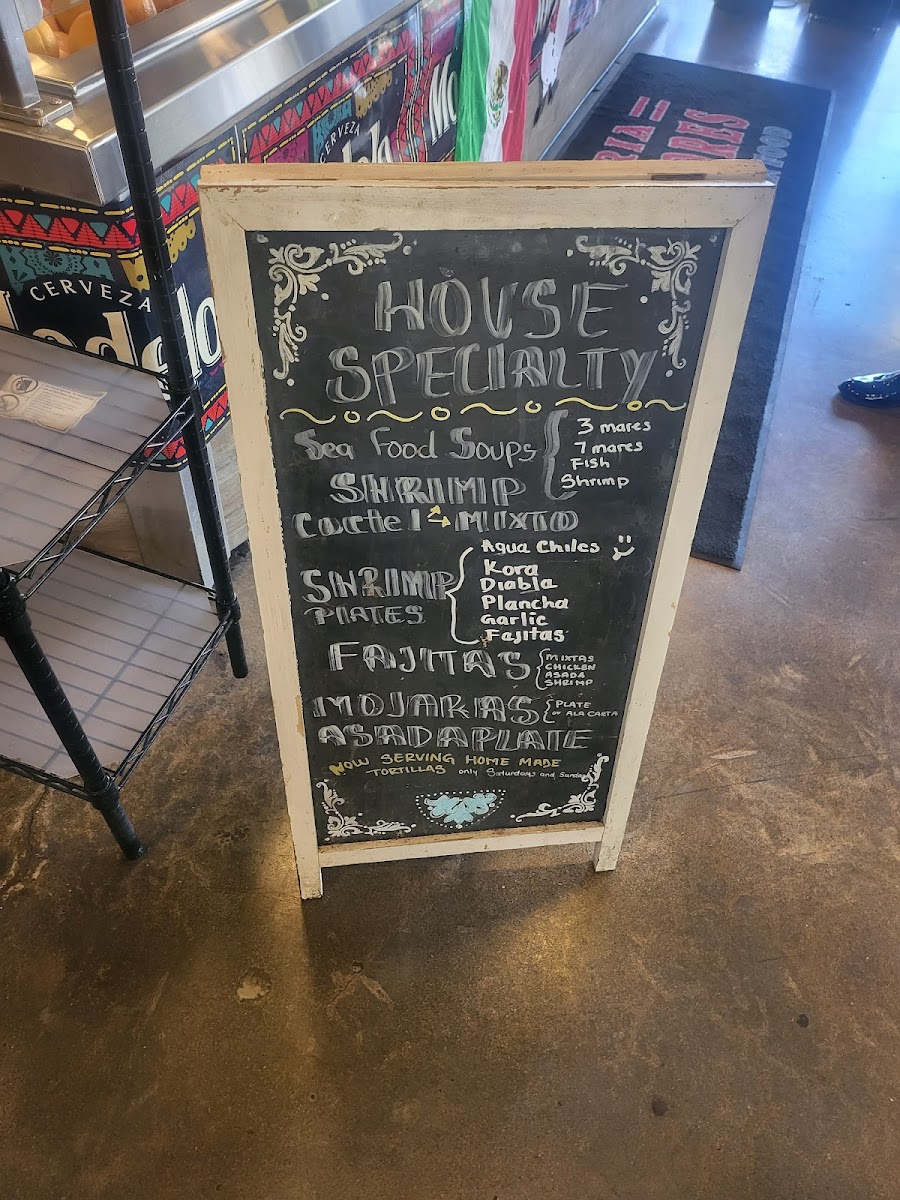 CERVEZA
Mo
CERVEZA
Modelo
RIA
RES
FOOD
HOUSE
SPECIALTY
Sea Food Soups
3 mares
7 mares
Fish
Shrimp
SHRIMP
Coctel MIXTO
SHRIMP
PLATES
Agua Chiles
Kora
Diabla
Plancha
Garlic
Fajitas
FAJITAS
MIXTAS
CHICKEN
ASADA
SHRIMP
MOJARAS
PLATE
or ALA CARTA
ASADA PLATE
NOW SERVING HOME MADE
TORTILLAS only Saturdays and Sunday